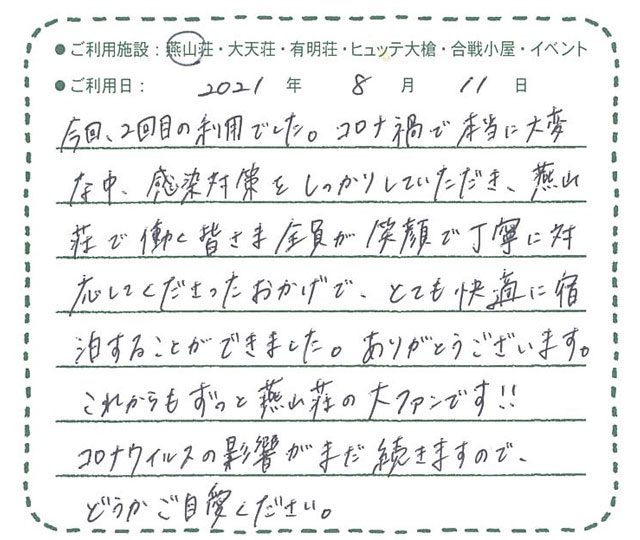 ●ご利用施設：燕山荘・大天荘・有明荘・ヒュッテ大槍・合戦小屋・イベント
●ご利用日： 2021 年 8 月 11 日
今回、2回目の利用でした。コロナ禍で本当に大変
な中、感染対策をしっかりしていただき、燕山
荘で働く皆さま全員が笑顔で丁寧に対
応してくださったおかげで、とても快適に宿
泊することができました。ありがとうございます。
これからもずっと燕山荘の大ファンです!!
コロナウイルスの影響がまだ続きますので、
どうかご自愛ください。